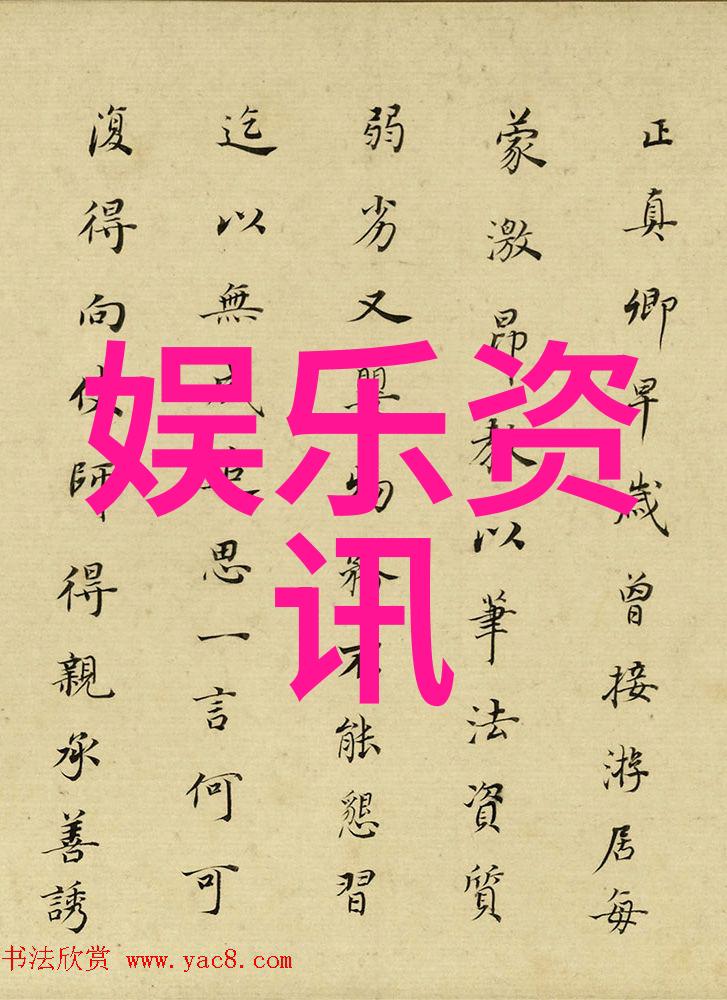 正真卿早歲曾接游居每
蒙激昂教以筆法資質
弱劣又嬰物務不能懇習
迄以無成追思一言何可
復得向使師得親承善誘
娱乐资
讯
书法欣赏 www.yac8.com